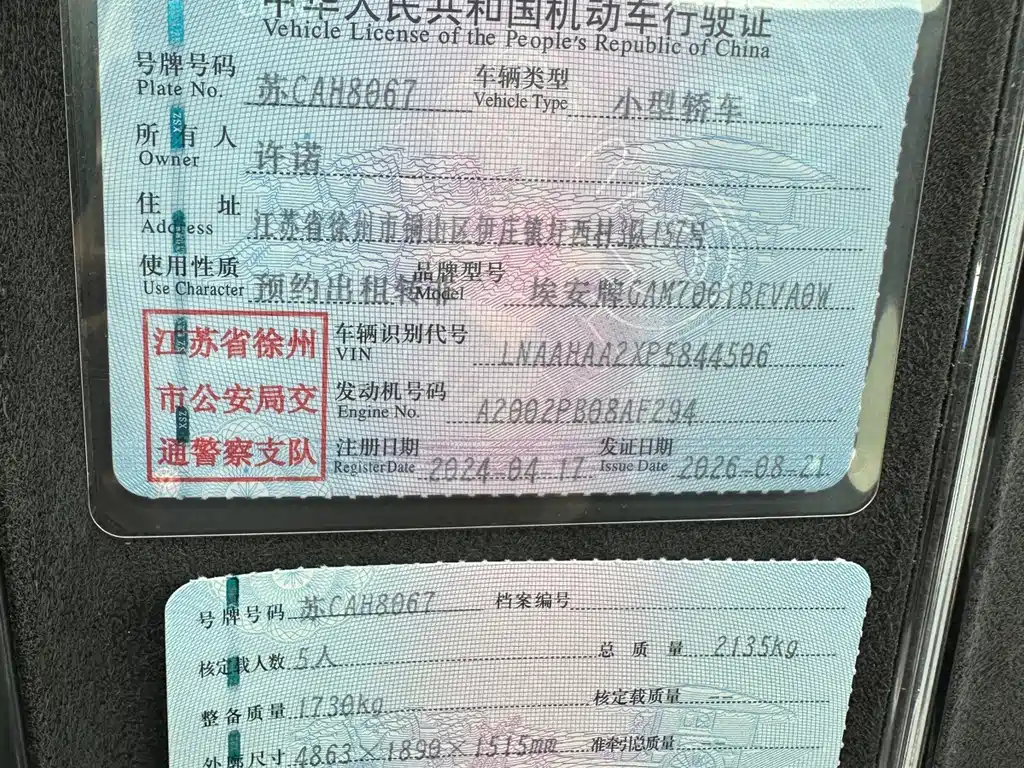 中华人民共和国机动车行驶证
Vehicle License of the People's Republic of China
号牌号码 苏CAH8067 车辆类型 小型轿车
Plate No. Vehicle Type
所有人 许诺
Owner
住址 江苏省徐州市铜山区伊庄镇圩西村3队157号
Address
使用性质 预约出租转 品牌型号 埃安牌GAM7001BEVA0W
Use Character Model
江苏省徐州市公安局交通警察支队
车辆识别代号 LNAAHAA2XP5844506
VIN
发动机号码 A2002PB08AF294
Engine No.
注册日期 2024-04-17 发证日期 2026-08-21
Register Date Issue Date
号牌号码 苏CAH8067 档案编号
核定载人数 5人 总质量 2135kg
整备质量 1730kg 核定载质量 --
外廓尺寸 4863×1890×1515mm 准牵引总质量 --